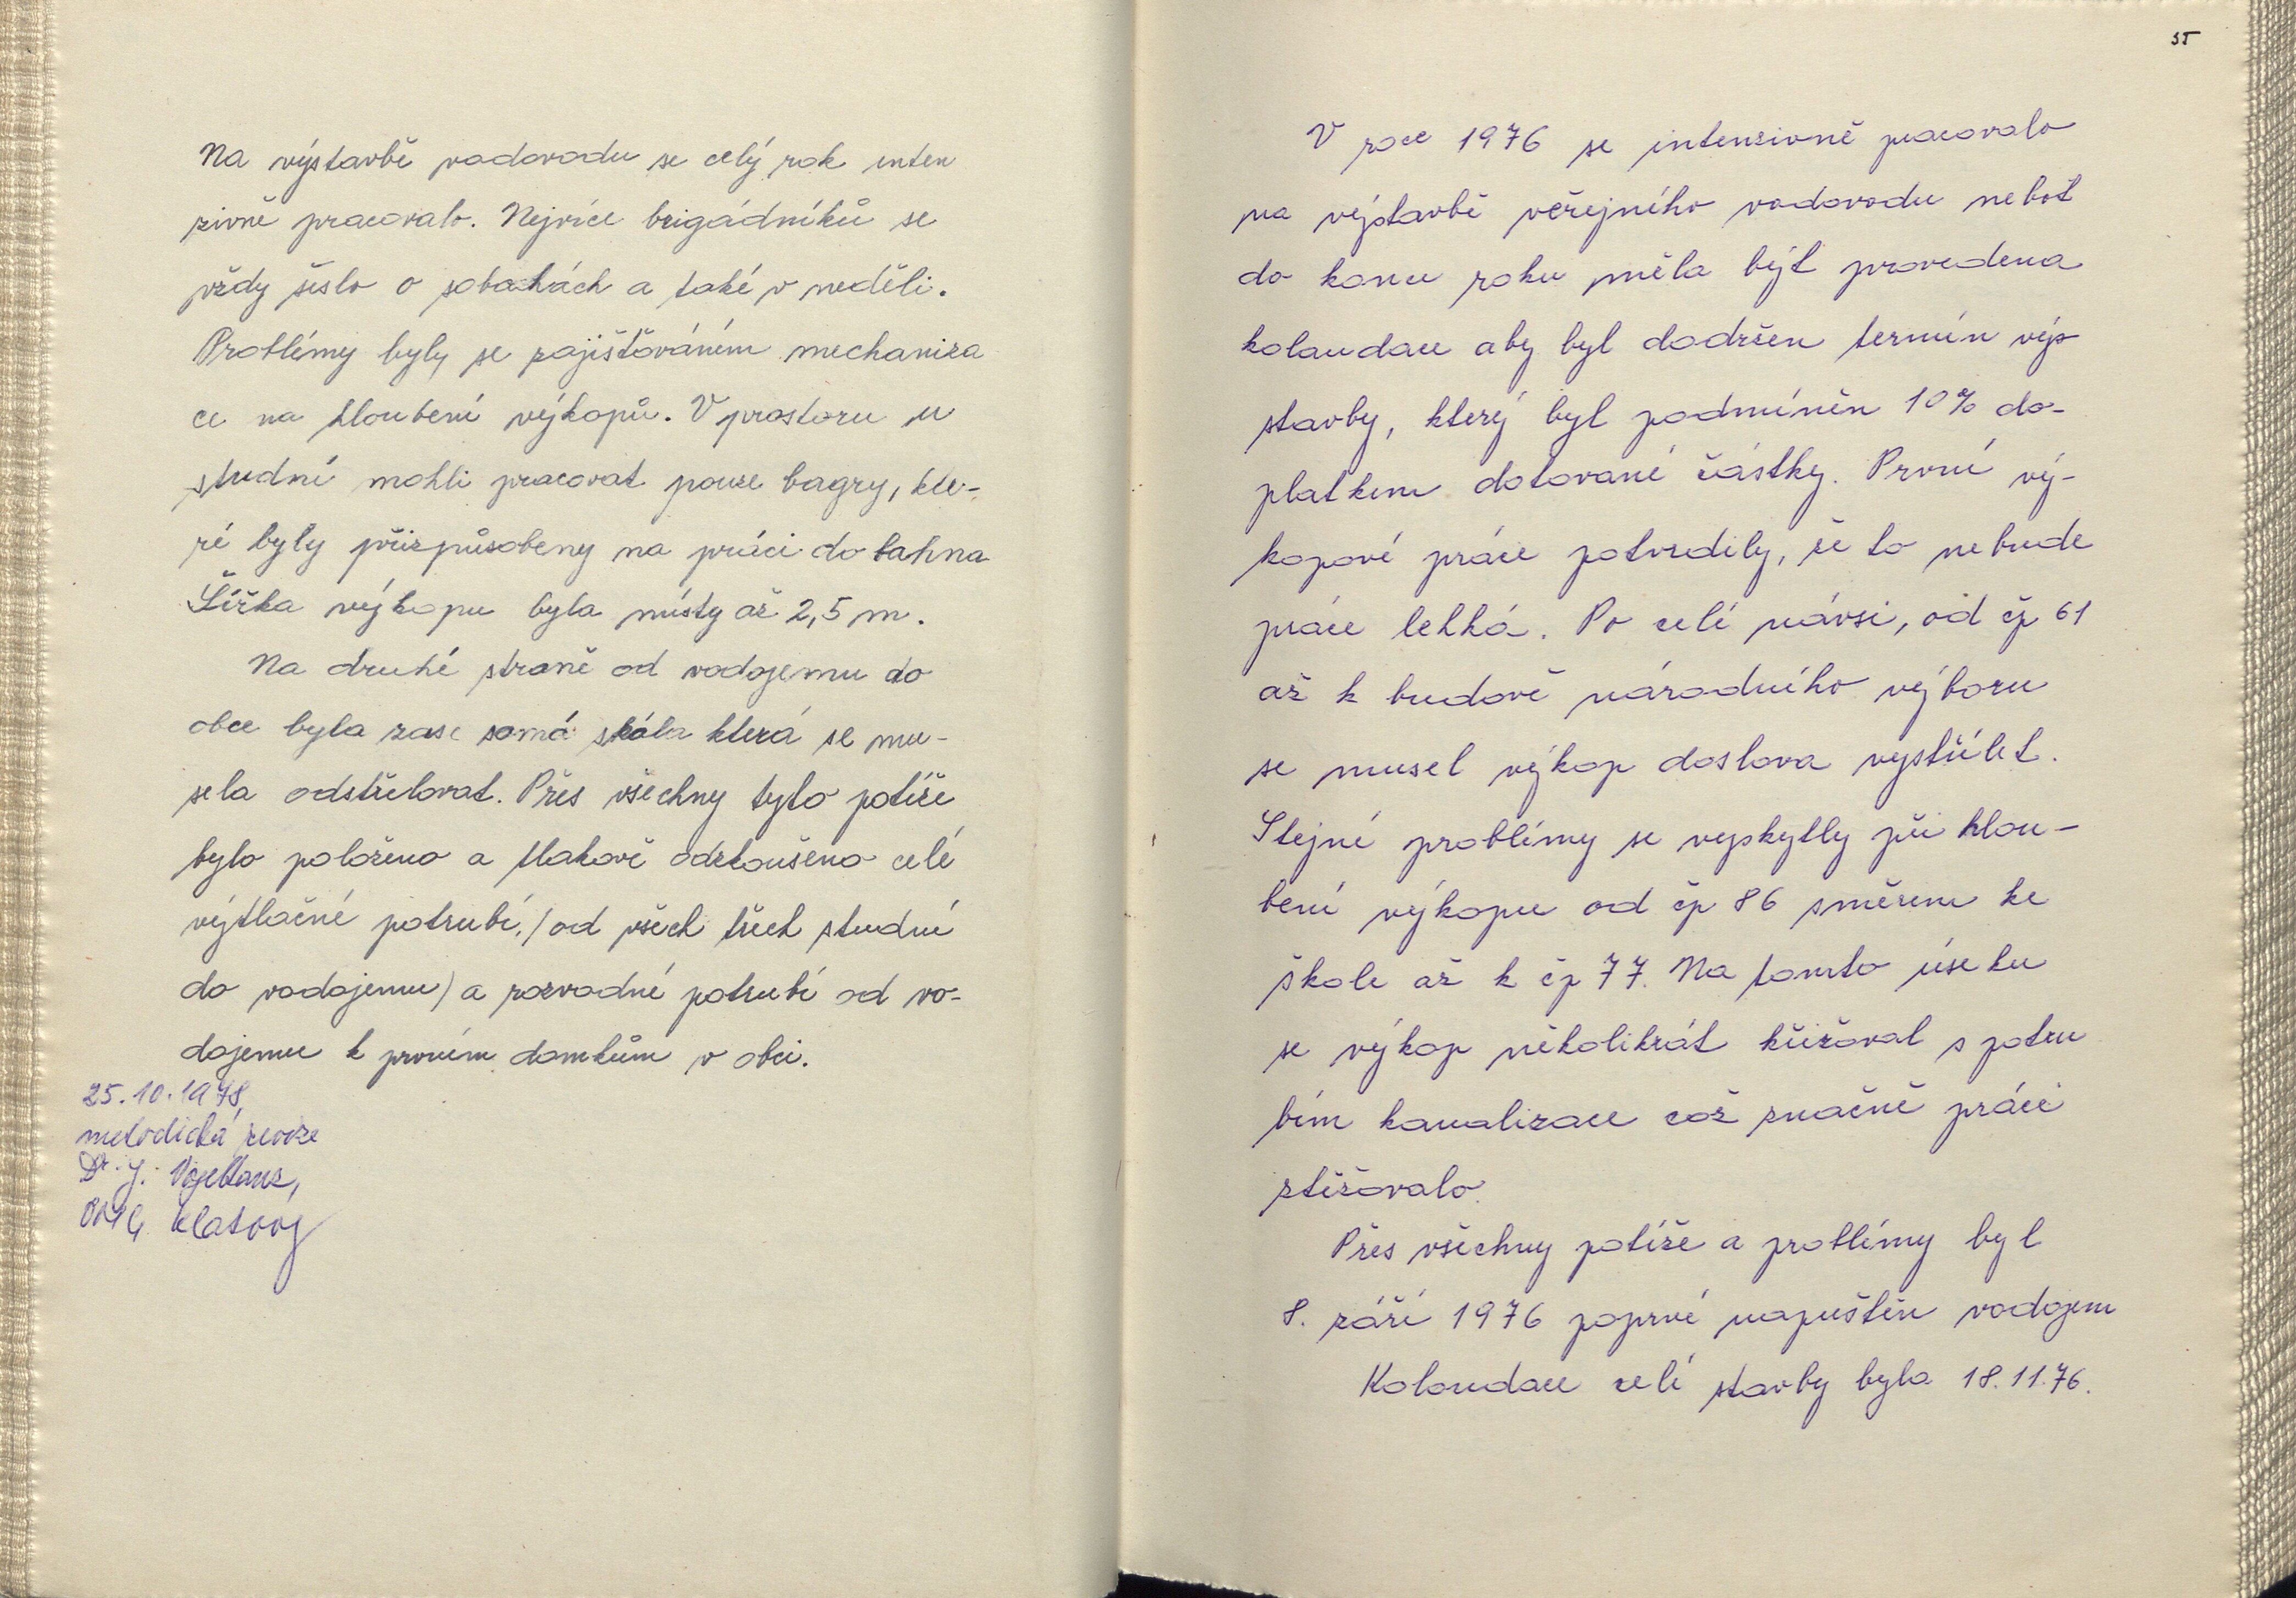 Na výstavbě vodovodu se celý rok inten
zivně pracovalo. Nejvíce brigádníků se
vždy sešlo o sobotách a také v neděli.
Problémy byly se zajišťováním mechaniza
ce na hloubení výkopů. V prostoru u
studní mohli pracovat pouze bagry, kte-
ré byly přizpůsobeny na práci do bahna
Šířka výkopu byla místy až 2,5 m.
Na druhé straně od vodojemu do
obce byla zase samá skála která se mu-
sela odstřelovat. Přes všechny tyto potíže
bylo položeno a tlakově odzkoušeno celé
výtlačné potrubí, /od všech třech studní
do vodojemu) a rozvodné potrubí od vo-
dojemu k prvním domkům v obci.
25.10.1978,
metodická revize
Dr. J.
Klatovy
35
V roce 1976 se intensivně pracovalo
na výstavbě veřejného vodovodu neboť
do konce roku měla být provedena
kolaudace aby byl dodržen termín výs
stavby, který byl podmíněn 10% do-
platkem dotované částky. První vý-
kopové práce potvrdily, že to nebude
práce lehká. Po celé návsi, od čp 61
až k budově národního výboru
se musel výkop doslova vystřílet.
Stejné problémy se vyskytly při hlou-
bení výkopu od čp 86 směrem ke
škole až k čp 77. Na tomto úseku
se výkop několikrát křižoval s potru
bím kanalizace což značně práci
ztěžovalo.
Přes všechny potíže a problémy byl
8. září 1976 poprvé napuštěn vodojem
Kolaudace celé stavby byla 18.11.76.